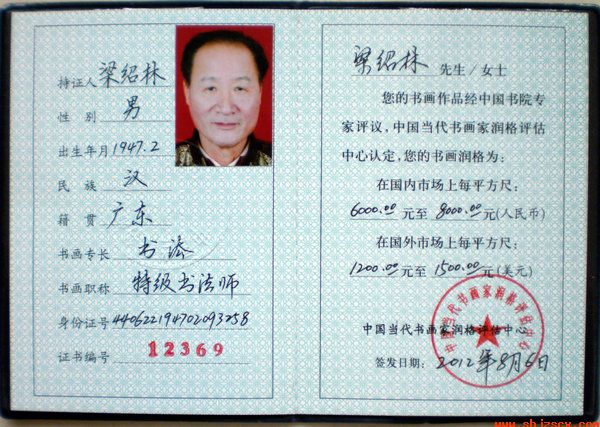 持证人 梁绍林
性别 男
出生年月 1947.2
民族 汉
籍贯 广东
书画专长 书法
书画职称 特级书法师
身份证号 440622194702093258
证书编号 12369
梁绍林 先生/女士
您的书画作品经中国书院专
家评议，中国当代书画家润格评估
中心认定，您的书画润格为：
在国内市场上每平方尺：
6000.00 元至 8000.00 元(人民币)
在国外市场上每平方尺：
1200.00 元至 1500.00 元(美元)
中国当代书画家润格评估中心
中国当代书画家润格评估中心
签发日期： 2012年8月6日
www.shjzscx.com